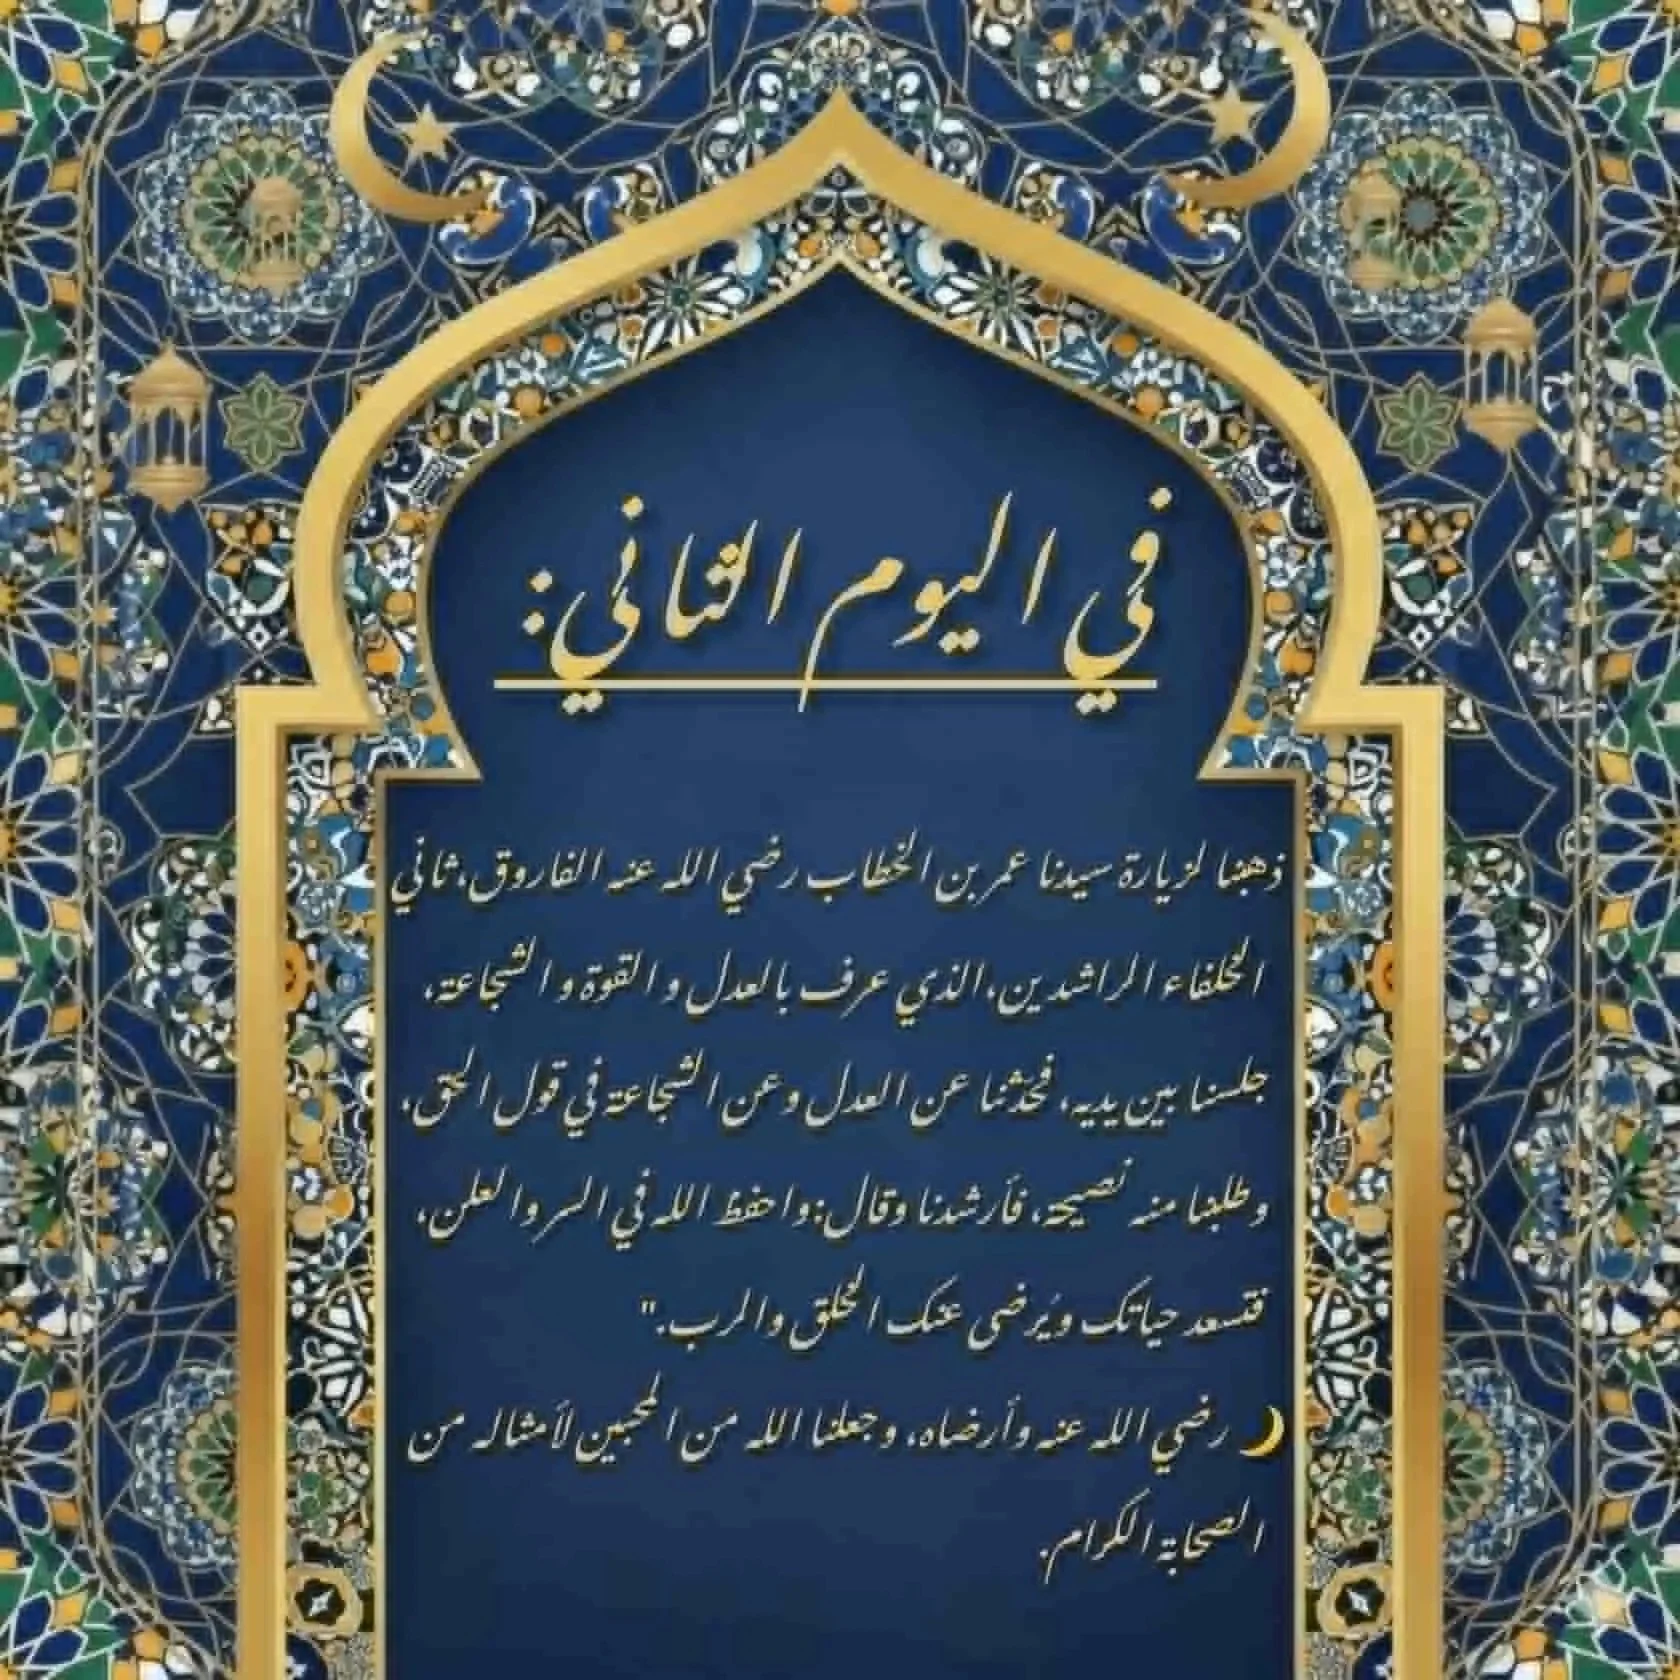 في اليوم الثاني:
ذهبنا لزيارة سيدنا عمر بن الخطاب رضي الله عنه الفاروق، ثاني
الخلفاء الراشدين، الذي عرف بالعدل و القوة و الشجاعة،
جلسنا بين يديه، فحدثنا عن العدل وعن الشجاعة في قول الحق،
وطلبنا منه نصيحة، فأرشدنا وقال:واحفظ الله في السر والعلن،
فتسعد حياتك ويُرضى عنك الخلق والرب."
🌙 رضي الله عنه وأرضاه، وجعلنا الله من المحبين لأمثاله من
الصحابة الكرام.